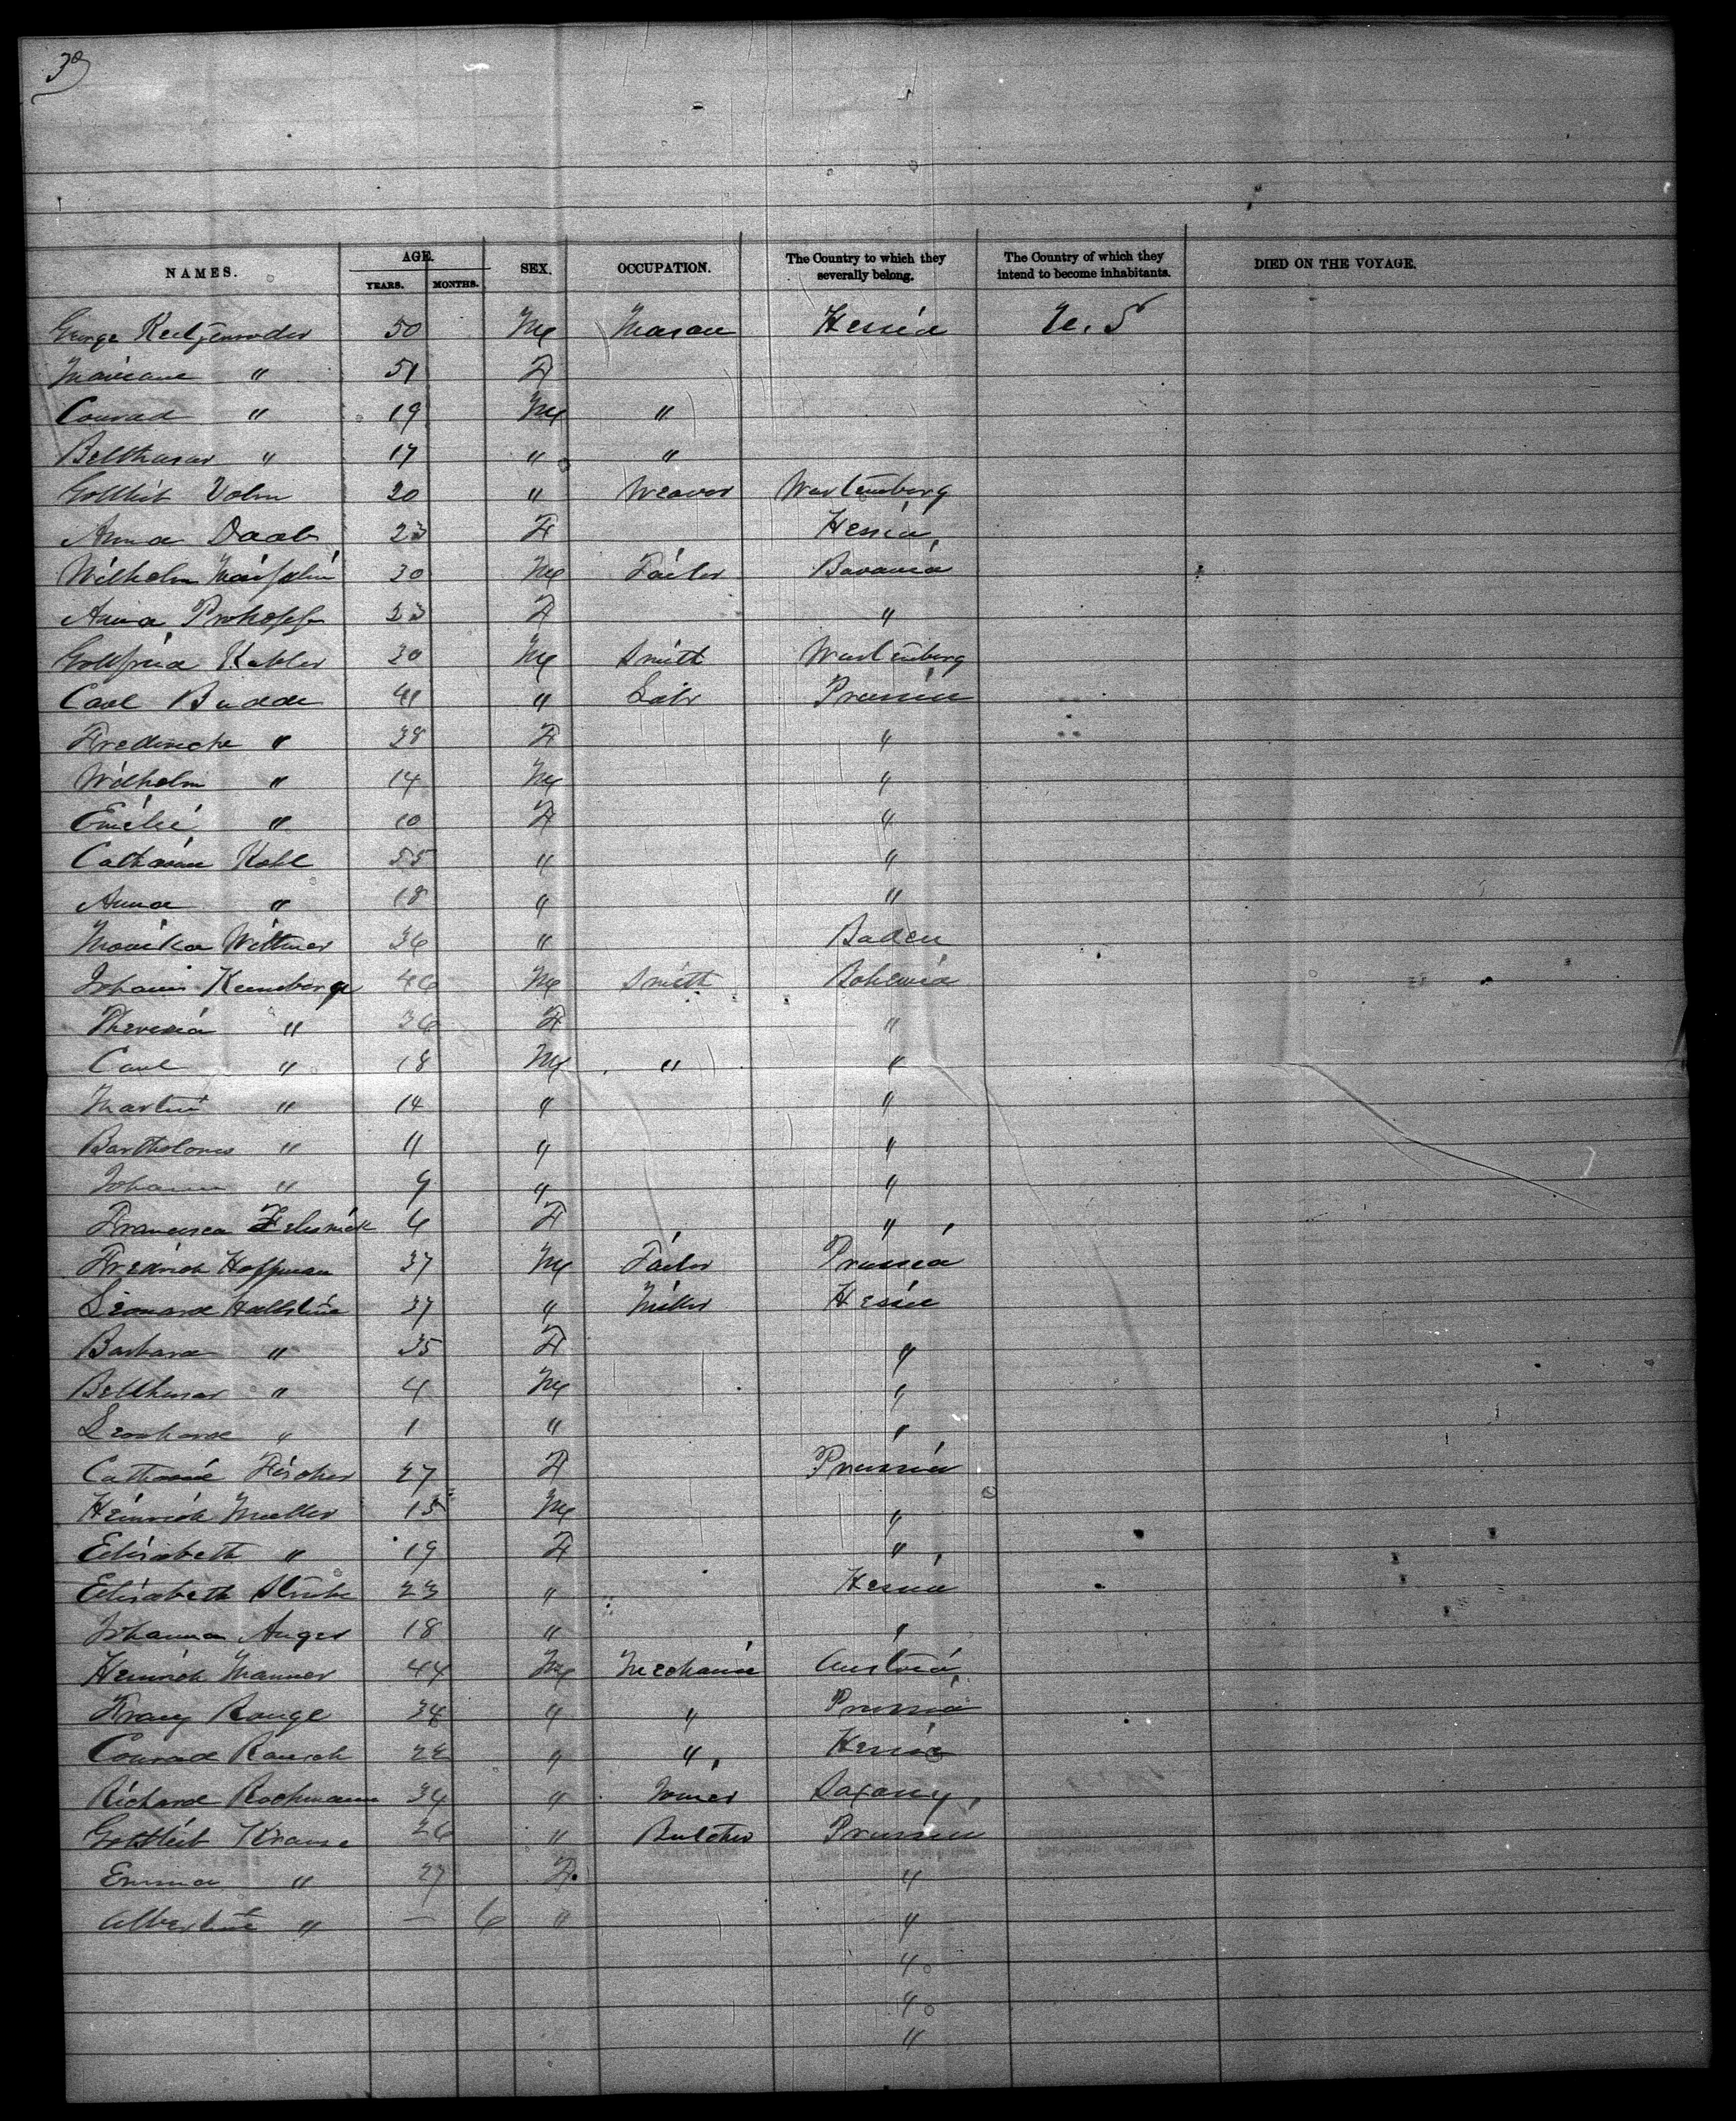 39
NAMES. AGE. SEX. OCCUPATION. The Country to which they severally belong. The Country of which they intend to become inhabitants. DIED ON THE VOYAGE.
YEARS. MONTHS.
George 50 M Mason Hessia U. S
Mariane " 51 F
Conrad " 19 M "
Balthasar " 17 " "
Gottlieb Volm 20 " Weaver Wurtemberg
Anna Daab 23 F Hessia
Wilhelm 30 M Tailor Bavaria
Anna Prokopp 23 F "
Gottfried Kobler 30 M Smith Wurtemberg
Carl Budde 41 " Labr Prussia
Fredericke " 38 F "
Wilhelm " 14 M "
Emilie " 10 F "
Catharine Kohl 55 " "
Anna " 18 " "
Monika Wittmer 36 " Baden
Johann 46 M Smith Bohemia
Theresia " 36 F "
Carl " 18 M " "
Martin " 14 " "
Bartholomes " 11 " "
Johann " 9 " "
Francisca 6 F "
Fredrich Hoffman 37 M Tailor Prussia
Leonard 37 " Miller Hessia
Barbara " 35 F "
Balthasar " 4 M "
Leonhard " 1 " "
Catharine Fischer 27 F Prussia
Heinrich Mueller 15 M "
Elisabeth " 19 F "
Elisabeth 23 " Hessia
Johanna Anger 18 " "
Heinrich Manner 44 M Mechanic Austria
Franz Range 34 " " Prussia
Conrad Rausch 22 " " Hessia
Richard Rochmann 34 " Joiner Saxony
Gottlieb Krause 26 " Butcher Prussia
Emma " 27 F "
Albertine " — 6 " "
"
"
"